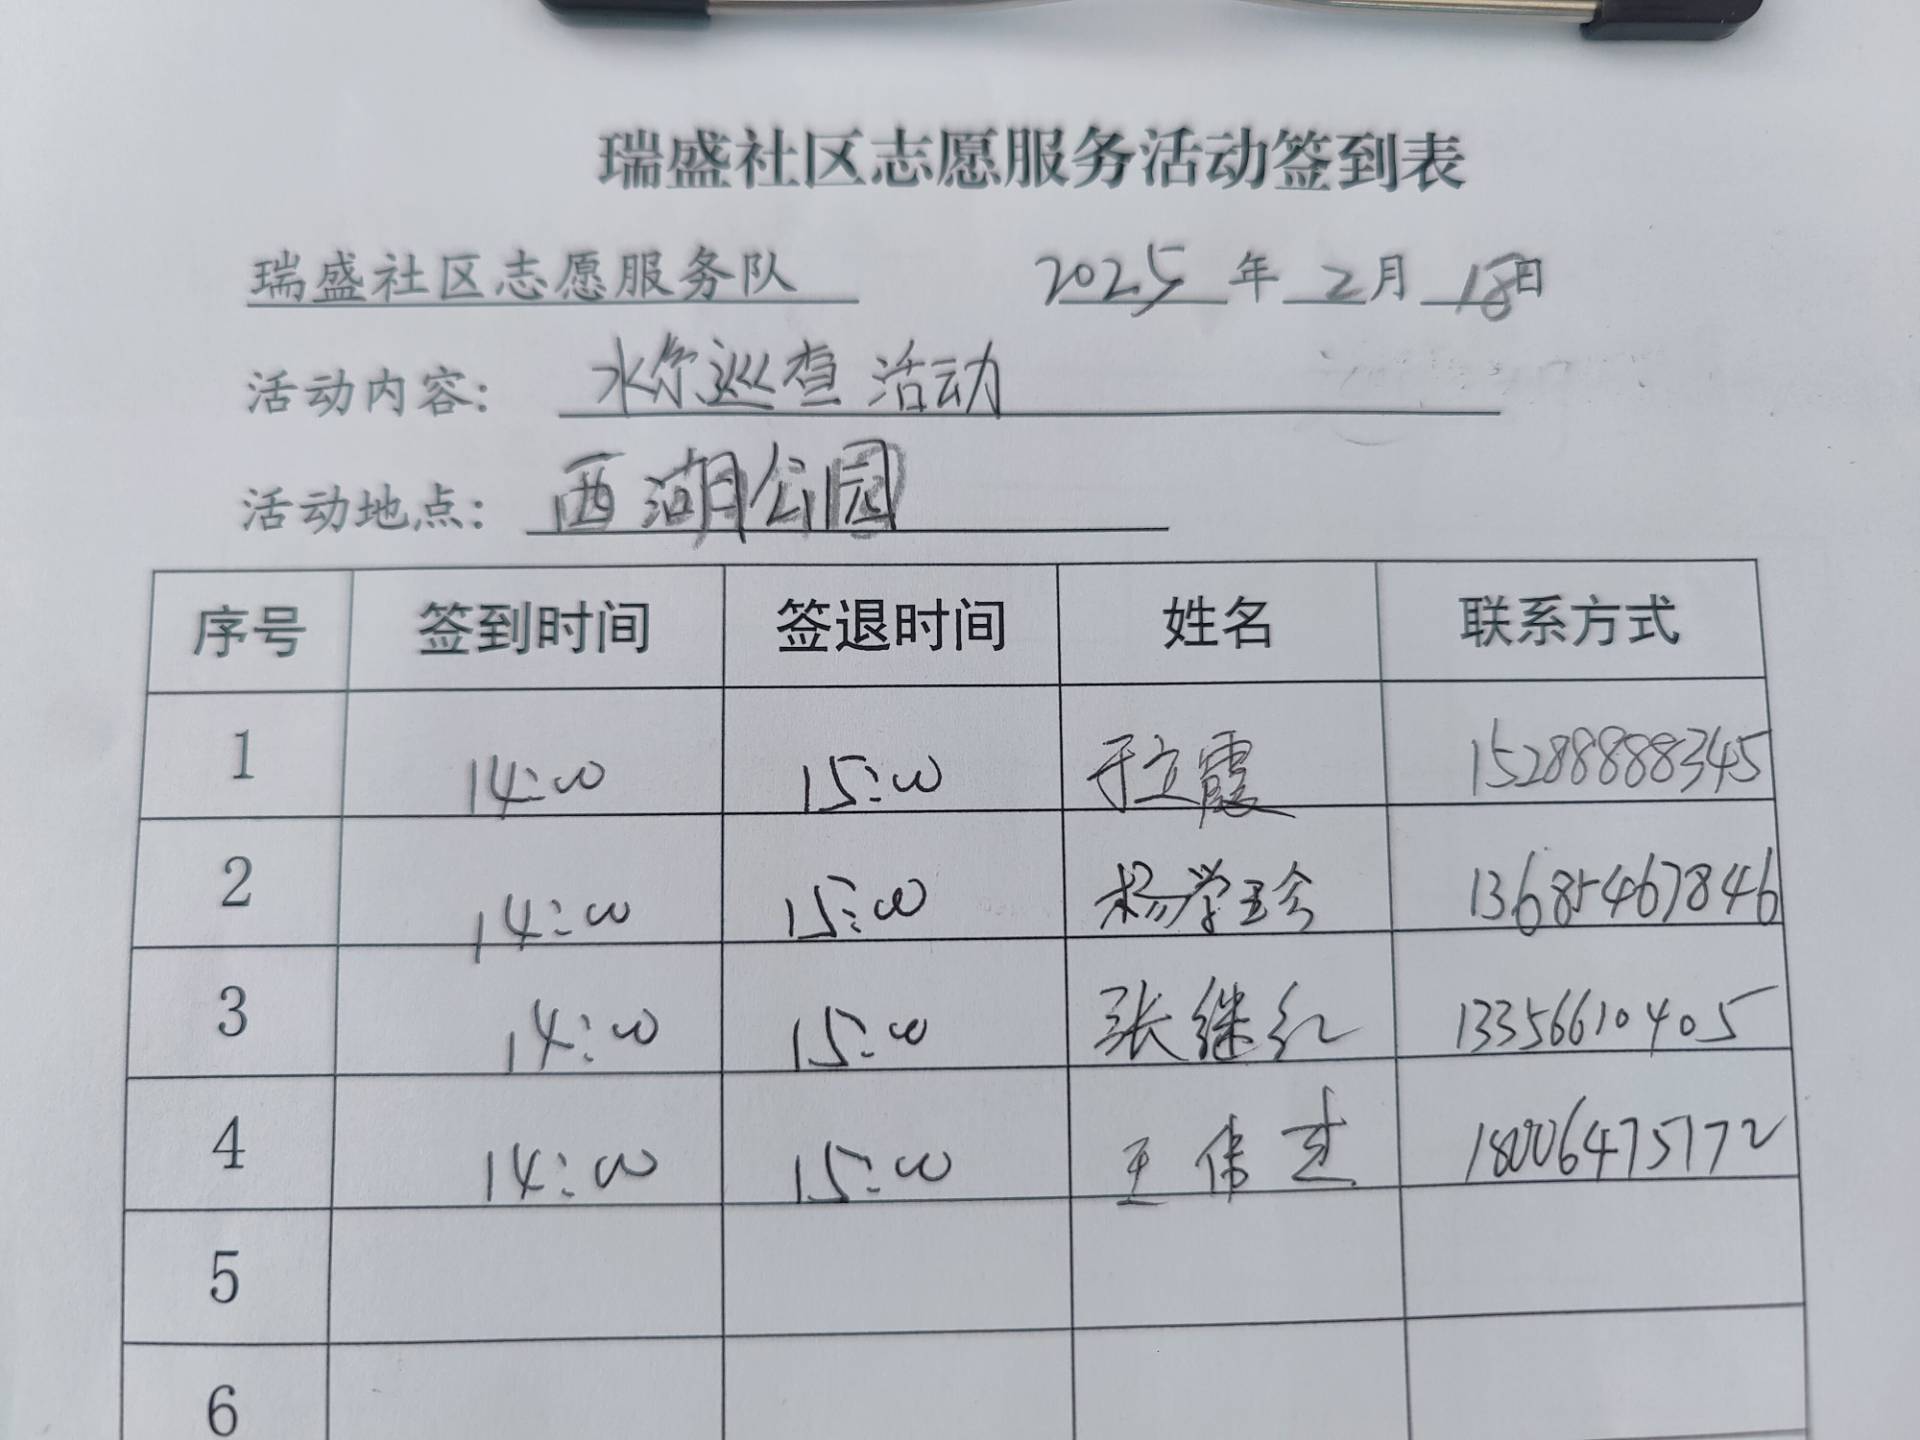 瑞盛社区志愿服务活动签到表
瑞盛社区志愿服务队 2025年2月18日
活动内容: 水尔巡查活动
活动地点: 西湖公园
序号 签到时间 签退时间 姓名 联系方式
1 14:00 15:00 于立霞 15288888345
2 14:00 15:00 杨学珍 13685467846
3 14:00 15:00 张继红 13356610405
4 14:00 15:00 王伟杰 18006475172
5
6